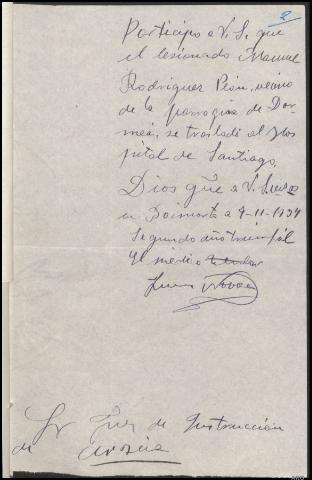 2
Participo a V. S. que
el lesionado Manuel
Rodriguez Pisu, vecino
de la parroquia de Dor
meá, se trasladó al Hos
pital de Santiago.
Dios gûe a V. S.
en Boimorto a 9-11-1937
Segundo año triunfal
El médico titular
Novoa
Sr Juez de Instrucción
de Arzúa